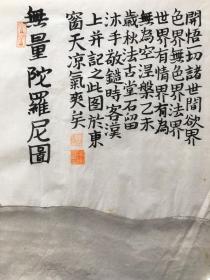 開悟一切諸世間欲界
色界無色界法界
世界有情界有為
無為空涅槃乙未
歲秋法古堂石留
沐手敬鐥時客漠
上并記之此图於東
窗天凉氣爽矣
無量陀羅尼圖